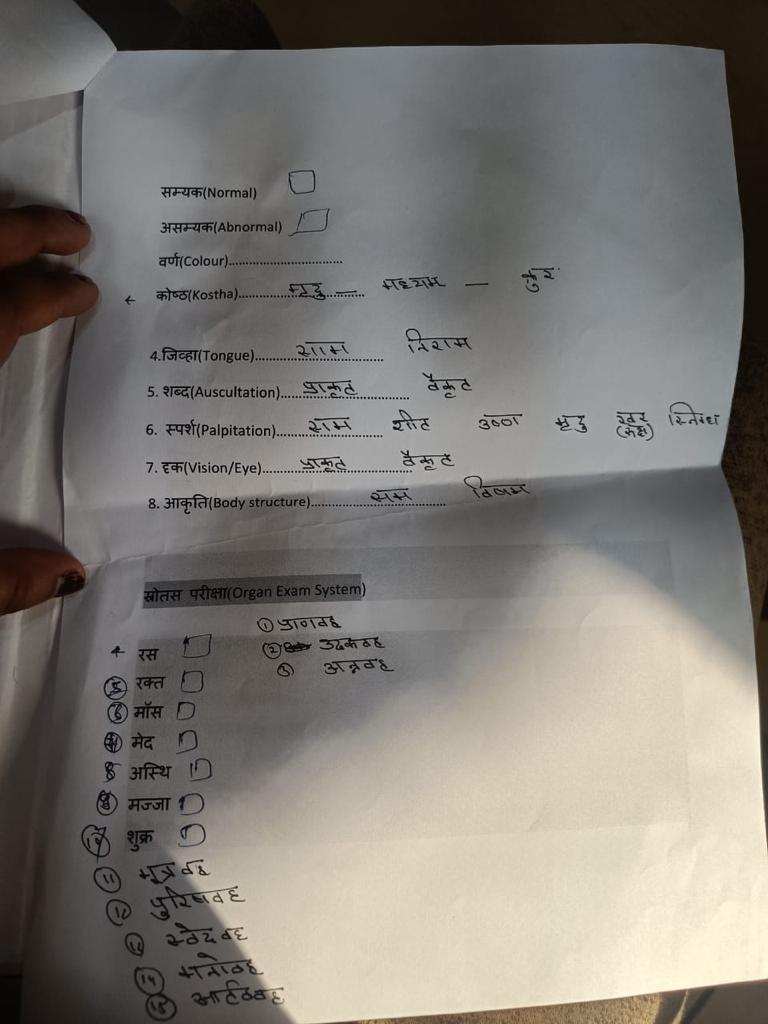 सम्यक(Normal)
असम्यक(Abnormal)
वर्ण(Colour)..............................
← कोष्ठ(Kostha)..................... मृदु — मध्यम — क्रुर
4.जिव्हा(Tongue).............................. साम निराम
5. शब्द(Auscultation).............................. प्राकृत वैकृत
6. स्पर्श(Palpitation).............................. सम शीत उष्ण मृदु खर (रुक्ष) स्निग्ध
7. दृक(Vision/Eye).............................. प्राकृत वैकृत
8. आकृति(Body structure).............................. सम विषम
स्रोतस परीक्षा(Organ Exam System)
① प्राणवह
② उदकवह
③ अन्नवह
4 रस
5 रक्त
6 मॉस
7 मेद
8 अस्थि
9 मज्जा
10 शुक्र
11 मूत्रवह
12 पुरिषवह
13 स्वेदवह
14 मनोवह
15 आर्तववह